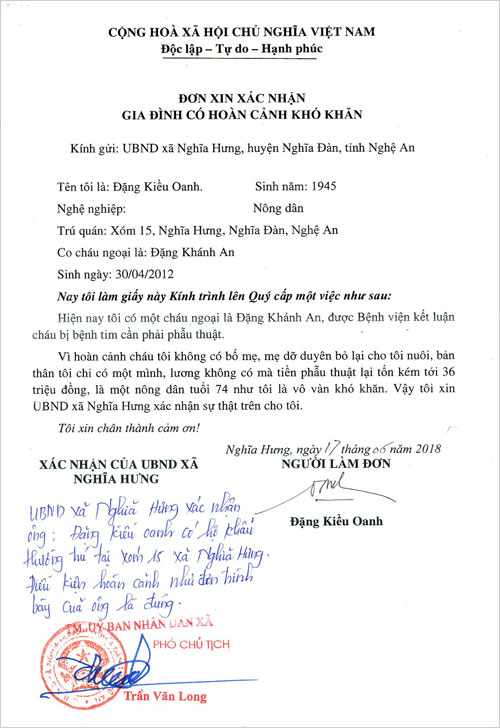 CỘNG HOÀ XÃ HỘI CHỦ NGHĨA VIỆT NAM
Độc lập – Tự do – Hạnh phúc
ĐƠN XIN XÁC NHẬN
GIA ĐÌNH CÓ HOÀN CẢNH KHÓ KHĂN
Kính gửi: UBND xã Nghĩa Hưng, huyện Nghĩa Đàn, tỉnh Nghệ An
Tên tôi là: Đặng Kiều Oanh. Sinh năm: 1945
Nghề nghiệp: Nông dân
Trú quán: Xóm 15, Nghĩa Hưng, Nghĩa Đàn, Nghệ An
Co cháu ngoại là: Đặng Khánh An
Sinh ngày: 30/04/2012
Nay tôi làm giấy này Kính trình lên Quý cấp một việc như sau:
Hiện nay tôi có một cháu ngoại là Đặng Khánh An, được Bệnh viện kết luận
cháu bị bệnh tim cần phải phẫu thuật.
Vì hoàn cảnh cháu tôi không có bố mẹ, mẹ dỡ duyên bỏ lại cho tôi nuôi, bản
thân tôi chỉ có một mình, lương không có mà tiền phẫu thuật lại tốn kém tới 36
triệu đồng, là một nông dân tuổi 74 như tôi là vô vàn khó khăn. Vậy tôi xin
UBND xã Nghĩa Hưng xác nhận sự thật trên cho tôi.
Tôi xin chân thành cảm ơn!
Nghĩa Hưng, ngày 17 tháng 06 năm 2018
XÁC NHẬN CỦA UBND XÃ
NGHĨA HƯNG
NGƯỜI LÀM ĐƠN
Đặng Kiều Oanh
UBND xã Nghĩa Hưng xác nhận
ông: Đặng kiều oanh có hộ khẩu
thường trú tại xóm 15 xã Nghĩa Hưng.
Điều kiện hoàn cảnh như đơn trình
bày của ông là đúng.
TM. UỶ BAN NHÂN DÂN XÃ
PHÓ CHỦ TỊCH
Trần Văn Long